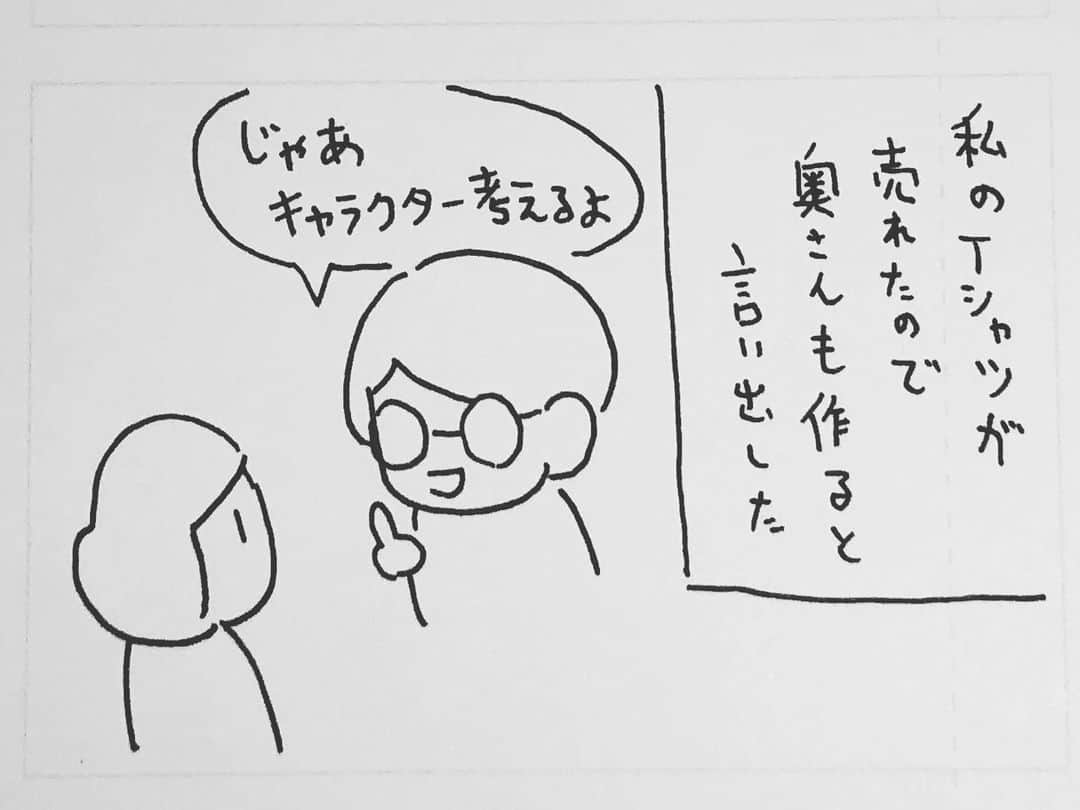 私のTシャツが
売れたので
奥さんも作ると
言い出した
じゃあ
キャラクター考えるよ